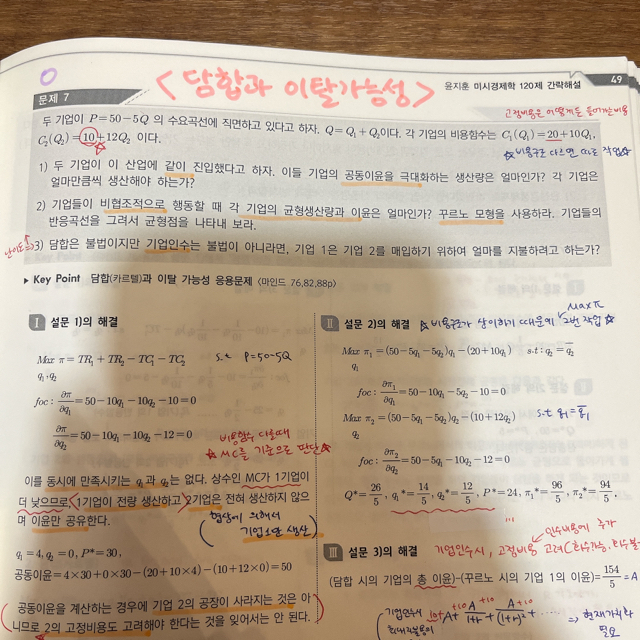 <담합과 이탈가능성>
윤지훈 미시경제학 120제 간략해설 49
문제 7
고정비용은 어떻게든 들어가는비용
두 기업이 P=50-5Q 의 수요곡선에 직면하고 있다고 하자. Q=Q₁+Q₂이다. 각 기업의 비용함수는 C₁(Q₁)=20+10Q₁,
C₂(Q₂)=10+12Q₂ 이다.
☆비용구조 다르면 따로 작업☆
1) 두 기업이 이 산업에 같이 진입했다고 하자. 이들 기업의 공동이윤을 극대화하는 생산량은 얼마인가? 각 기업은
얼마만큼씩 생산해야 하는가?
2) 기업들이 비협조적으로 행동할 때 각 기업의 균형생산량과 이윤은 얼마인가? 꾸르노 모형을 사용하라. 기업들의
반응곡선을 그려서 균형점을 나타내 보라.
난이도↑
3) 담합은 불법이지만 기업인수는 불법이 아니라면, 기업 1은 기업 2를 매입하기 위하여 얼마를 지불하려고 하는가?
▶ Key Point 담합(카르텔)과 이탈 가능성 응용문제 <마인드 76,82,88p>
Ⅰ 설문 1)의 해결
Max π=TR₁+TR₂-TC₁-TC₂ s.t P=50-5Q
q₁,q₂
foc: ∂π/∂q₁=50-10q₁-10q₂-10=0
∂π/∂q₂=50-10q₁-10q₂-12=0
비용함수 다를때
★MC를 기준으로 판단☆
이를 동시에 만족시키는 q₁과 q₂는 없다. 상수인 MC가 1기업이
더 낮으므로, 1기업이 전량 생산하고 2기업은 전혀 생산하지 않으
며 이윤만 공유한다.
(협상에 의해서
기업1만 생산)
q₁=4, q₂=0, P*=30,
공동이윤=4×30+0×30-(20+10×4)-(10+12×0)=50
공동이윤을 계산하는 경우에 기업 2의 공장이 사라지는 것은 아
니므로 2의 고정비용도 고려해야 한다는 것을 잊어서는 안 된다.
Maxπ
Ⅱ 설문 2)의 해결 ☆비용구조가 상이하기 때문에 2번 작업☆
Max π₁=(50-5q₁-5q₂)q₁-(20+10q₁) s.t: q₂=q̄₂
q₁
foc: ∂π₁/∂q₁=50-10q₁-5q₂-10=0
Max π₂=(50-5q₁-5q₂)q₂-(10+12q₂) s.t q₁=q̄₁
q₂
foc: ∂π₂/∂q₂=50-5q₁-10q₂-12=0
Q*=26/5, q₁*=14/5, q₂*=12/5, P*=24, π₁*=96/5, π₂*=94/5,
인수비용에 추가
Ⅲ 설문 3)의 해결 기업인수시, 고정비용 고려
(담합 시의 기업의 총 이윤)-(꾸르노 시의 기업 1의 이윤)=154/5=A
(기업인수시 10+A+A/1+r+A/(1+r)²+····· ⇒ 현재가치화
+10 +10
필요